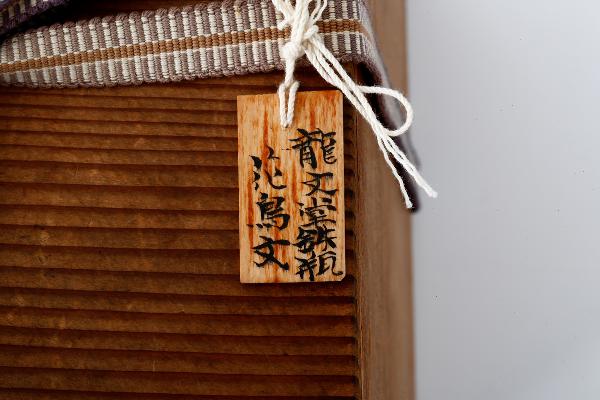 龍文堂鉄瓶
花鳥文